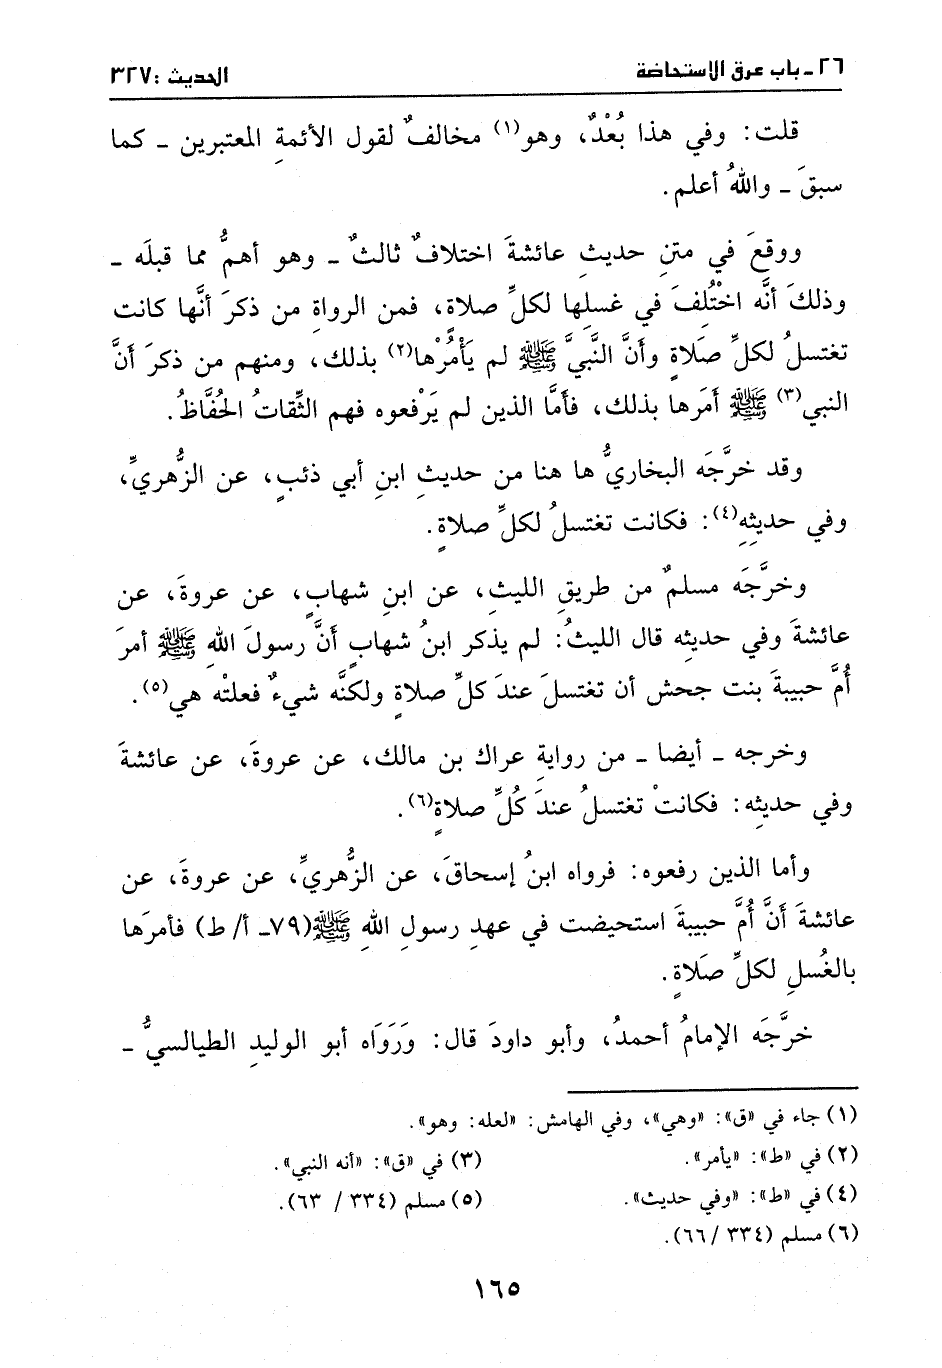 ٢٦ ـ باب عرق الاستحاضة
الحديث : ٣٢٧
قلت: وفي هذا بُعْدٌ، وهو(١) مخالفٌ لقول الأئمةِ المعتبرين ـ كما
سبقَ ـ واللهُ أعلم.
ووقعَ في متنِ حديثِ عائشةَ اختلافٌ ثالثٌ ـ وهو أهمُّ مما قبلَه ـ
وذلكَ أنَّه اخْتُلفَ في غسلِها لكلِّ صلاةٍ، فمن الرواةِ من ذكرَ أنَّها كانت
تغتسلُ لكلِّ صَلاةٍ وأنَّ النَّبيَّ ﷺ لم يَأْمُرْها(٢) بذلك، ومنهم من ذكرَ أنَّ
النبي(٣) ﷺ أمَرها بذلك، فأمَّا الذين لم يَرْفعوه فهم الثِّقاتُ الحُفَّاظُ.
وقد خرَّجَه البخاريُّ ها هنا من حديثِ ابنِ أبي ذئبٍ، عن الزُّهريِّ،
وفي حديثِهِ(٤): فكانت تغتسلُ لكلِّ صلاةٍ.
وخرَّجَه مسلمٌ من طريقِ الليثِ، عن ابنِ شهابٍ، عن عروةَ، عن
عائشةَ وفي حديثِه قال الليثُ: لم يذكر ابنُ شهابٍ أنَّ رسولَ اللهِ ﷺ أمرَ
أُمَّ حبيبةَ بنت جحش أن تغتسلَ عندَ كلِّ صلاةٍ ولكنَّه شيءٌ فعلتْه هي(٥).
وخرجه ـ أيضا ـ من روايةِ عراك بن مالك، عن عروةَ، عن عائشةَ
وفي حديثِه: فكانتْ تغتسلُ عندَ كُلِّ صلاةٍ(٦).
وأما الذين رفعوه: فرواه ابنُ إسحاقَ، عن الزُّهريِّ، عن عروةَ، عن
عائشةَ أنَّ أُمَّ حبيبةَ استحيضت في عهدِ رسولِ اللهِ ﷺ(٧٩ـ أ/ ط) فأمرَها
بالغُسلِ لكلِّ صَلاةٍ.
خرَّجَه الإمامُ أحمدُ، وأبو داودَ قال: وَرَوَاه أبو الوليدِ الطيالسيُّ ـ
(١) جاء في «ق»: «وهي»، وفي الهامش: «لعله: وهو».
(٢) في «ط»: «يأمر».
(٣) في «ق»: «أنه النبي».
(٤) في «ط»: «وفي حديث».
(٥) مسلم (٣٣٤ / ٦٣).
(٦) مسلم (٣٣٤ /٦٦).
١٦٥